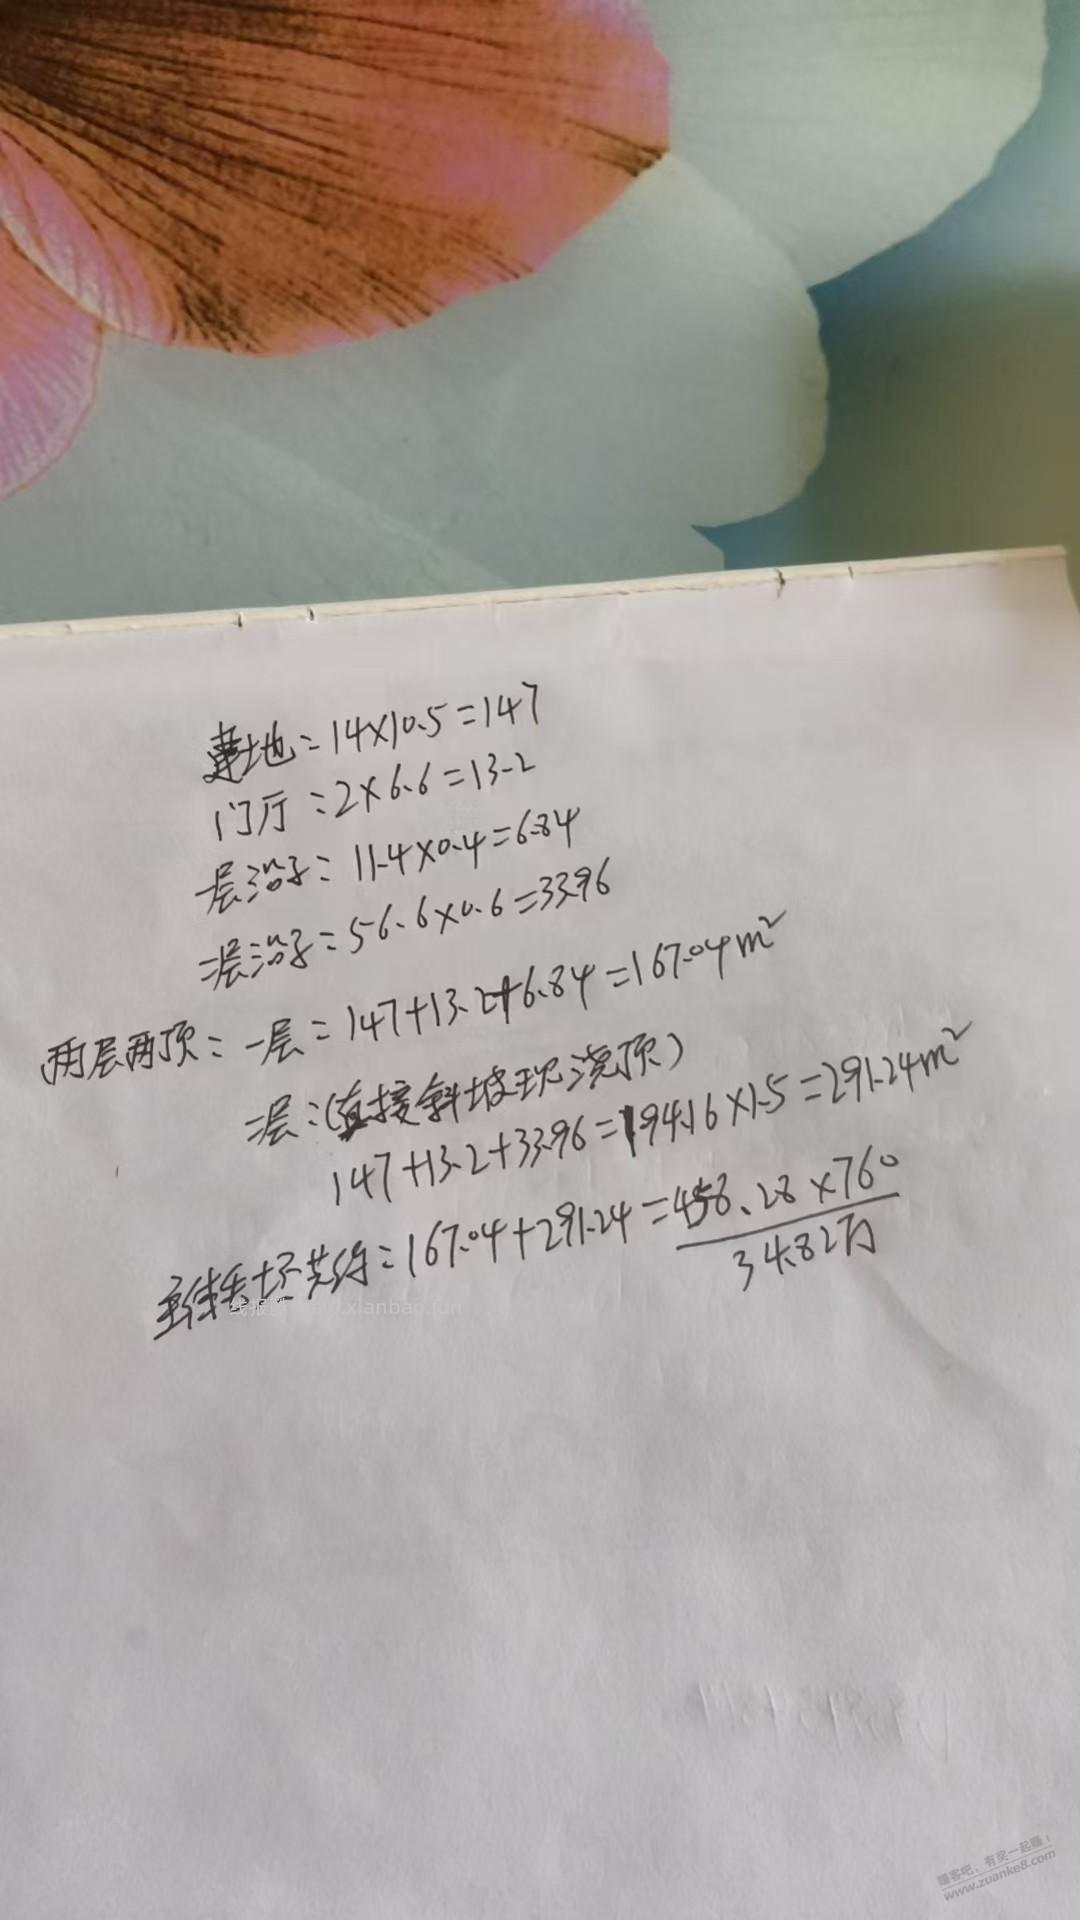 基地：14×10.5=147
门厅：2×6.6=13.2
一层沿子：11.4×0.4=6.84
二层沿子：56.6×0.6=33.96
两层两顶：一层：147+13.2+6.84=167.04m²
二层：(直接斜坡现浇顶)
147+13.2+33.96=194.16×1.5=291.24m²
主体毛坯共价：167.04+291.24=458.28×760
34.82万
www.xianbao.fun
赚客吧，有奖一起赚！
www.zuanke8.com